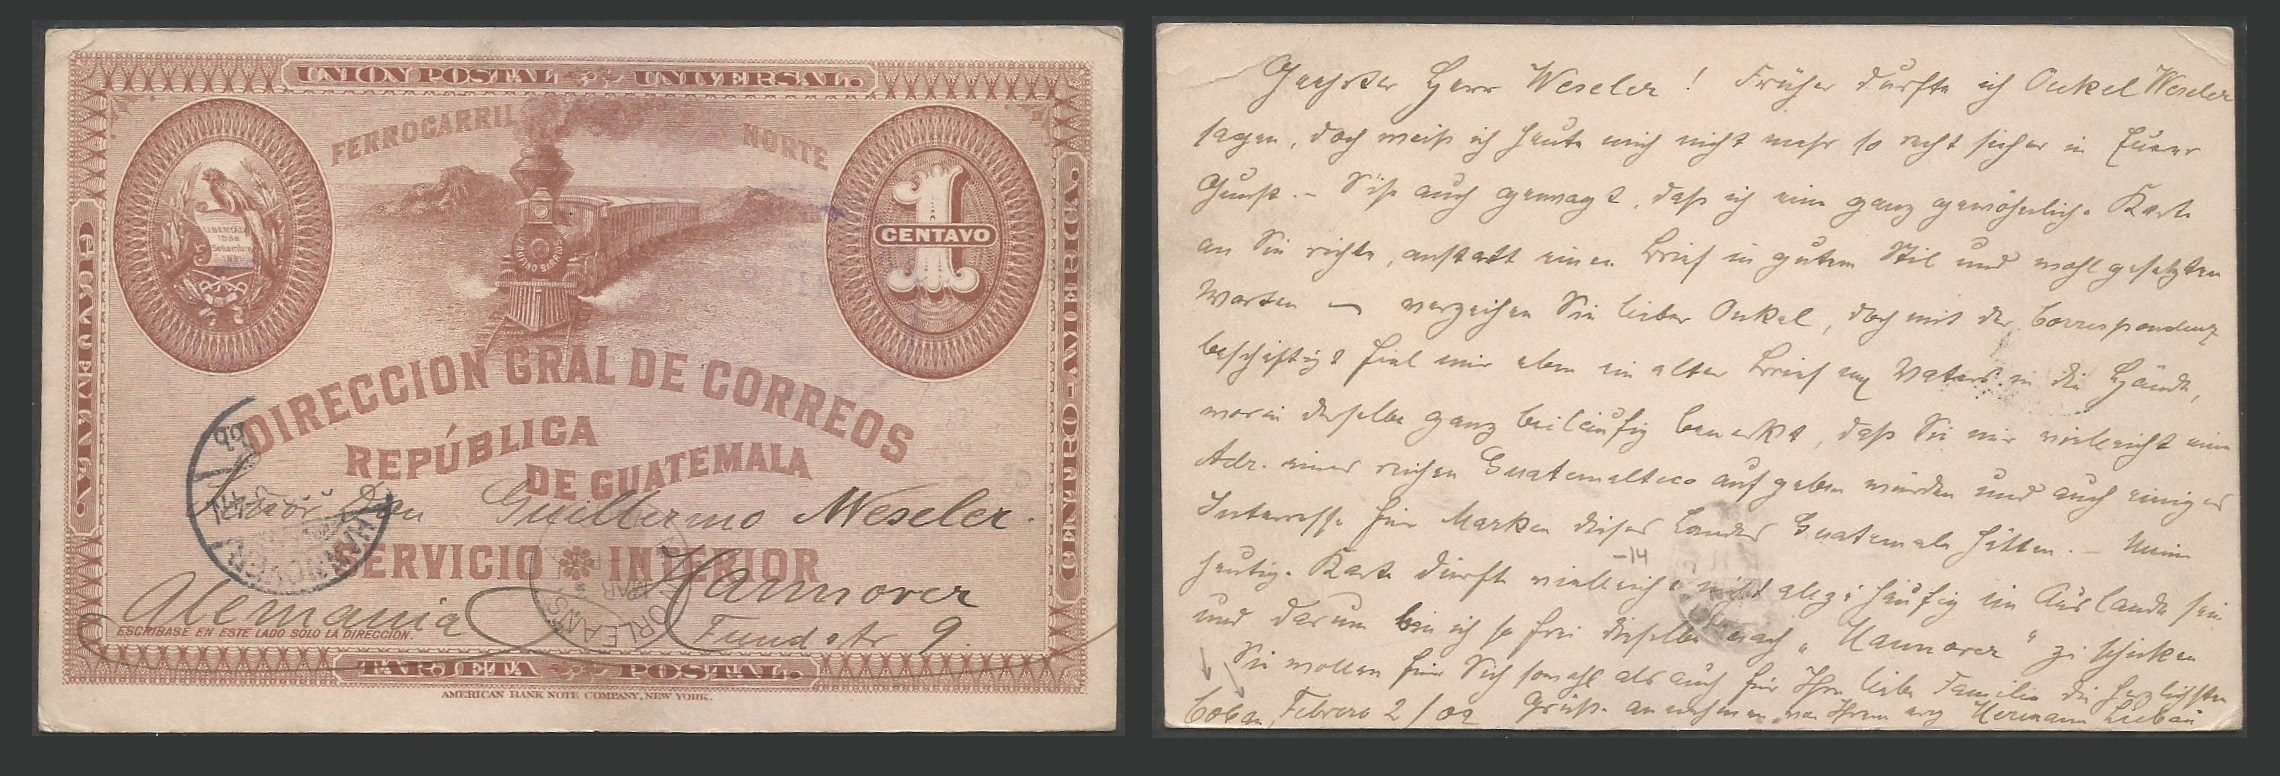 UNION POSTAL UNIVERSAL.
FERROCARRIL NORTE
LIBERTAD
15 DE
Setiembre
1821
RUFINO BARRIOS
1
CENTAVO
GUATEMALA.
CENTRO-AMERICA.
DIRECCION GRAL DE CORREOS
REPÚBLICA
DE GUATEMALA
Señor Don Guillermo Weseler.
SERVICIO INTERIOR
Hannover
Alemania
Fundstr 9.
ESCRIBASE EN ESTE LADO SOLO LA DIRECCION.
TARJETA POSTAL.
AMERICAN BANK NOTE COMPANY, NEW YORK.
HANNOVER
ORLEANS
MAR
Geehrter Herr Weseler! Früher durfte ich Onkel Weseler
sagen, doch weiß ich heute mich nicht mehr so recht sicher in Eurer
Gunst. – Ist's auch gewagt, daß ich eine ganz gewöhnliche Karte
an Sie richte, anstatt einen Brief in gutem Stil und wohl gesetzten
Worten — verzeihen Sie lieber Onkel, doch mit der Correspondenz
beschäftigt fiel mir eben ein alter Brief mn Vaters in die Hände,
worin derselbe ganz beiläufig bemerkt, daß Sie mir vielleicht eine
Adr. eines reichen Guatemalteco aufgeben würden und auch einiges
Interesse für Marken dieses Landes Guatemala hätten. – Meine
-14
heutige Karte dürfte vielleicht nicht alzu häufig im Auslande sein
und darum bin ich so frei dieselbe nach „Hannover“ zu schicken
Sie wollen für Sich sowohl als auch für Ihre liebe Familie die herzlichsten
Coban, Febrero 2/02 Grüße annehmen von Ihrem erg Hermann Liebau